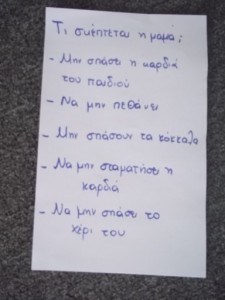 Τι σκέπτεται η μαμά;
- Μην σπάσει η καρδιά
του παιδιού
- Να μην πεθάνει
- Μην σπάσουν τα κόκκαλα
- Να μην σταματήσει η
καρδιά
- Να μην σπάσει το
χέρι του